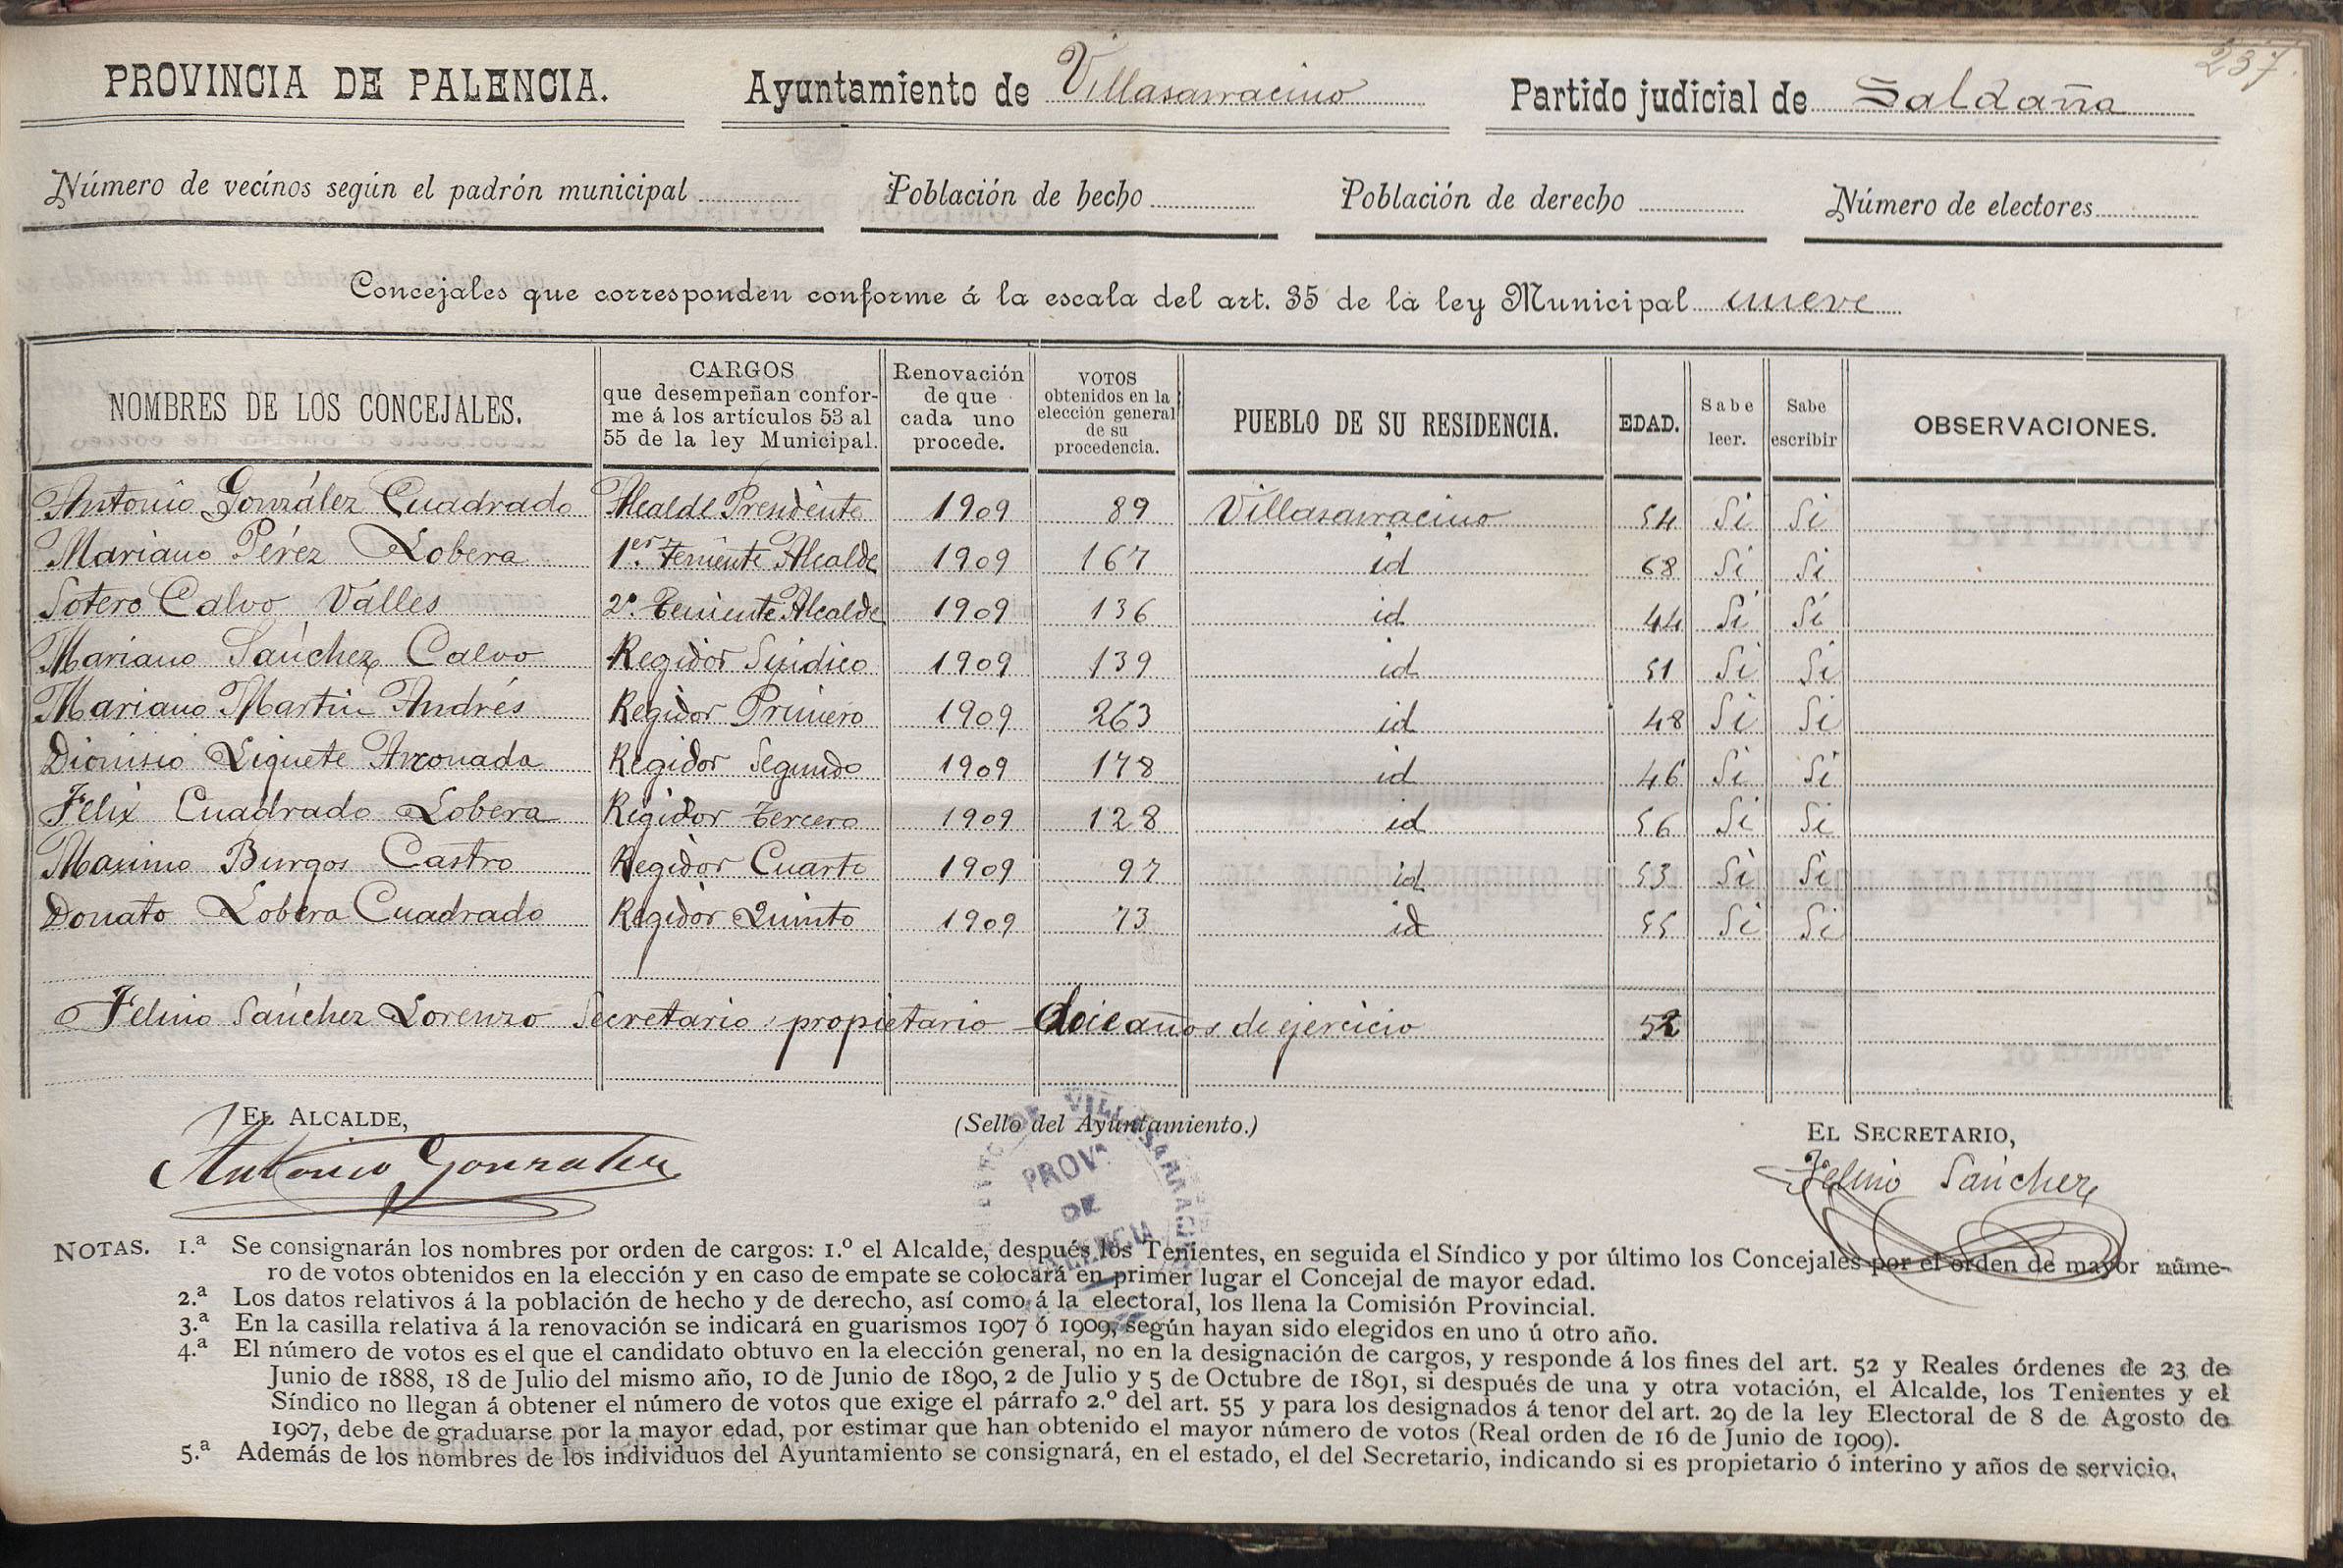 237.
PROVINCIA DE PALENCIA. Ayuntamiento de Villasarracino Partido judicial de Saldaña
Número de vecinos según el padrón municipal Población de hecho Población de derecho Número de electores
Concejales que corresponden conforme á la escala del art. 35 de la ley Municipal nueve
NOMBRES DE LOS CONCEJALES. CARGOS que desempeñan confor- me á los artículos 53 al 55 de la ley Municipal. Renovación de que cada uno procede. VOTOS obtenidos en la elección general de su procedencia. PUEBLO DE SU RESIDENCIA. EDAD. Sabe leer. Sabe escribir OBSERVACIONES.
Antonio González Cuadrado Alcalde Presidente 1909 89 Villasarracino 54 Si Si
Mariano Pérez Lobera 1er. Teniente Alcalde 1909 167 id 68 Si Si
Sotero Calvo Valles 2º. Teniente Alcalde 1909 136 id 44 Si Si
Mariano Sánchez Calvo Regidor Sindico 1909 139 id 51 Si Si
Mariano Martin Andrés Regidor Primero 1909 263 id 48 Si Si
Dionisio Liquete Arconada Regidor Segundo 1909 178 id 46 Si Si
Felix Cuadrado Lobera Regidor tercero 1909 128 id 56 Si Si
Maximo Burgos Castro Regidor Cuarto 1909 97 id 53 Si Si
Donato Lobera Cuadrado Regidor Quinto 1909 73 id 55 Si Si
Felino Sánchez Lorenzo Secretario propietario doce años de ejercicio 52
EL ALCALDE, (Sello del Ayuntamiento.) EL SECRETARIO,
Antonio Gonzalez PROVª DE PALENCIA Felino Sánchez
NOTAS. 1.ª Se consignarán los nombres por orden de cargos: 1.º el Alcalde, después los Tenientes, en seguida el Síndico y por último los Concejales por el orden de mayor núme-
ro de votos obtenidos en la elección y en caso de empate se colocará en primer lugar el Concejal de mayor edad.
2.ª Los datos relativos á la población de hecho y de derecho, así como á la electoral, los llena la Comisión Provincial.
3.ª En la casilla relativa á la renovación se indicará en guarismos 1907 ó 1909, según hayan sido elegidos en uno ú otro año.
4.ª El número de votos es el que el candidato obtuvo en la elección general, no en la designación de cargos, y responde á los fines del art. 52 y Reales órdenes de 23 de
Junio de 1888, 18 de Julio del mismo año, 10 de Junio de 1890, 2 de Julio y 5 de Octubre de 1891, si después de una y otra votación, el Alcalde, los Tenientes y el
Síndico no llegan á obtener el número de votos que exige el párrafo 2.º del art. 55 y para los designados á tenor del art. 29 de la ley Electoral de 8 de Agosto de
1907, debe de graduarse por la mayor edad, por estimar que han obtenido el mayor número de votos (Real orden de 16 de Junio de 1909).
5.ª Además de los nombres de los individuos del Ayuntamiento se consignará, en el estado, el del Secretario, indicando si es propietario ó interino y años de servicio.